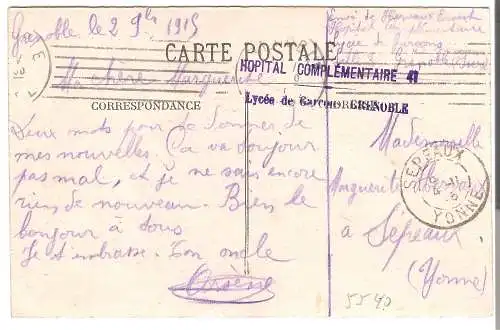 Grenoble le 2 9bre 1915
CARTE POSTALE
Ma chère Marguerite
CORRESPONDANCE
Deux mots pour te donner de
mes nouvelles. Ça va toujours
pas mal, et je ne sais encore
rien de nouveau. Bien le
bonjour à tous
Je t'embrasse. Ton oncle
Arsène
Envoi de
Hôpital Complémentaire
Lycée de Garçons
Grenoble (Isère)
HOPITAL COMPLÉMENTAIRE 41
Lycée de Garçons GRENOBLE
Mademoiselle
Marguerite
à Sépeaux
(Yonne)
SEPEAUX
YONNE
5540